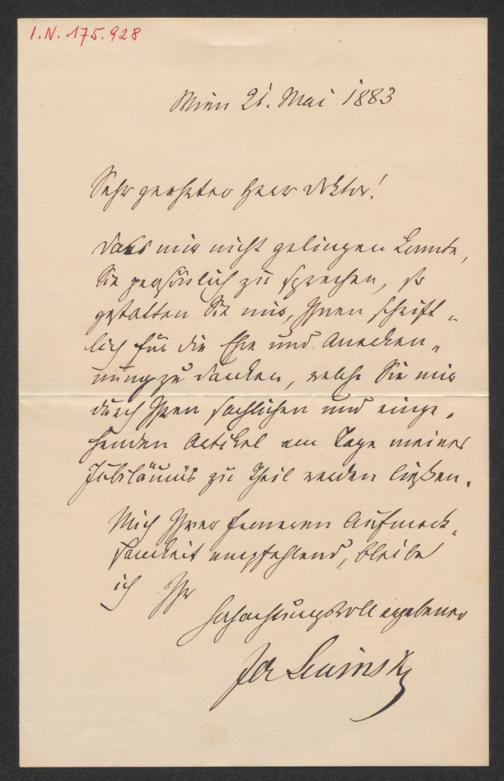 I.N. 175.928
Wien 21. Mai 1883
Sehr geehrter Herr Doktor!
Da es mir nicht gelingen konnte,
Sie persönlich zu sprechen, so
gestatten Sie mir, Ihnen schrift-
lich für die Ehre und Anerken-
nung zu danken, welche Sie mir
durch Ihren sachlichen und einge-
henden Artikel am Tage meines
Jubiläums zu Theil werden ließen.
Mich Ihrer ferneren Aufmerk-
samkeit empfehlend, bleibe
ich Ihr
hochachtungsvoll ergebener
Jos Lewinsky